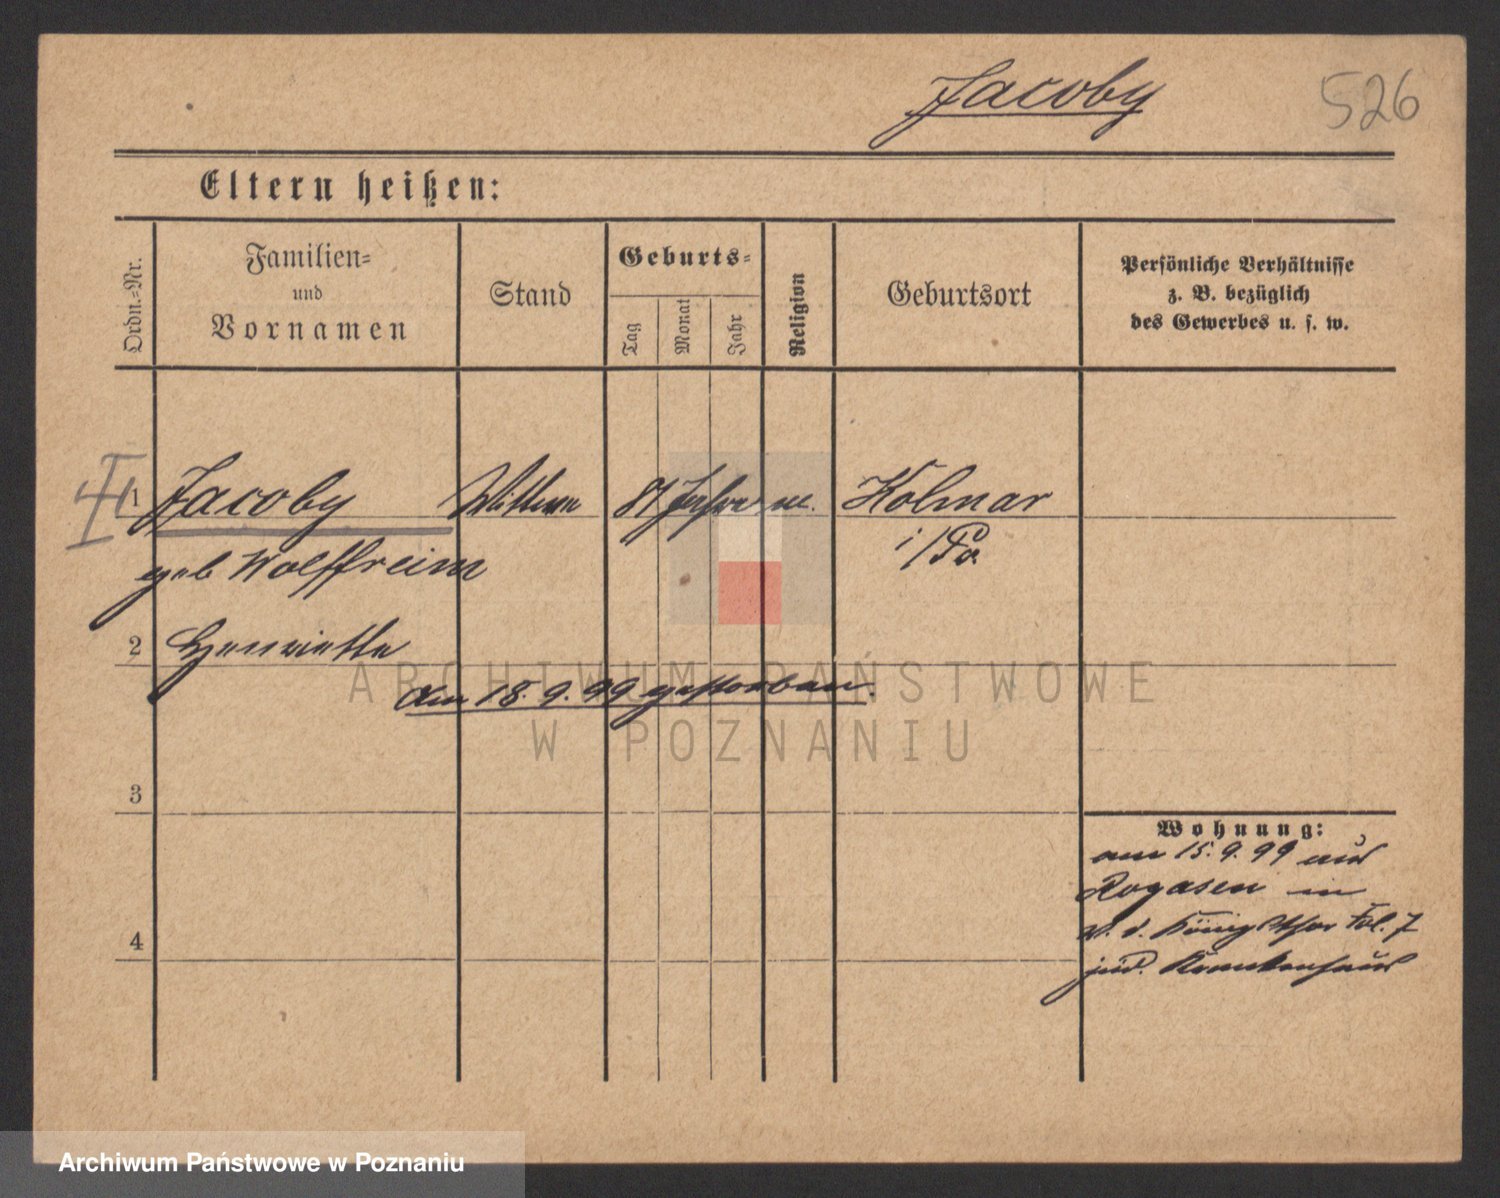 Jacoby
526
Eltern heißen:
Ordn.=Nr.
Familien=
und
Vornamen
Stand
Geburts=
Tag
Monat
Jahr
Religion
Geburtsort
Persönliche Verhältnisse
z. B. bezüglich
des Gewerbes u. s. w.
1 Jacoby Wittwe 81 Jahre m. Kolmar
i/Po.
geb Wolffreim
2 Henriette
am 18.9.99 gestorben.
3
Wohnung:
am 15.9.99 aus
Rogasen in
v. d. Königsthor Fol. 7
jüd. Krankenhaus
4
ARCHIWUM PAŃSTWOWE
W POZNANIU
Archiwum Państwowe w Poznaniu